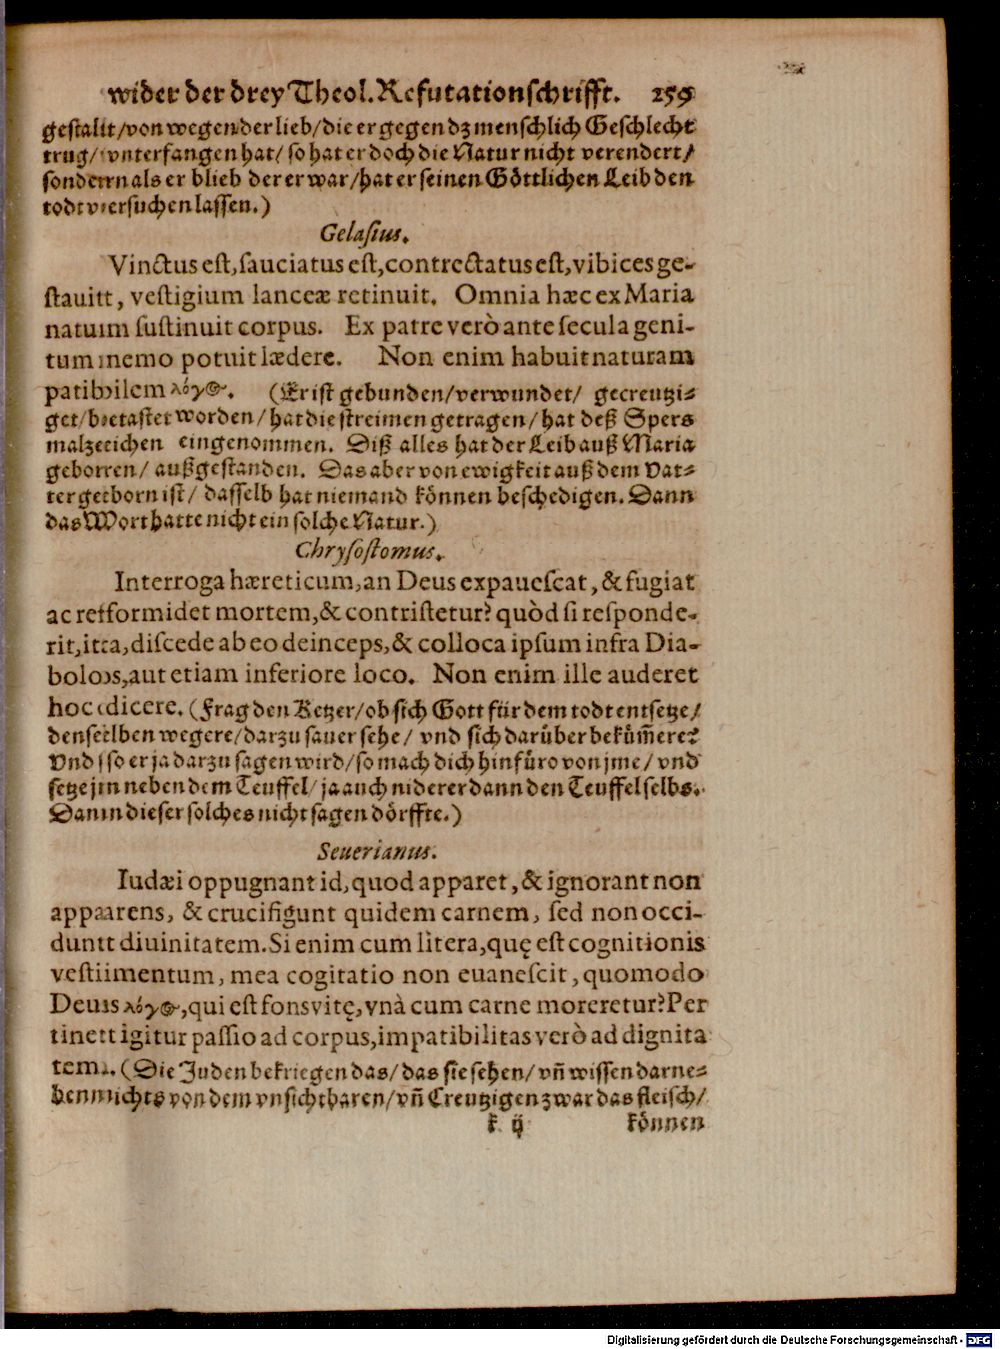 wider der drey Theol. Refutationschrifft. 259
gestallt/von wegen der lieb/die er gegen dz menschlich Geschlecht
trug/ vnterfangen hat/ so hat er doch die Natur nicht verendert/
sondern als er blieb der er war/hat er seinen Göttlichen Leib den
todt versuchen lassen.)
Gelasius.
Vinctus est, sauciatus est, contrectatus est, vibices ge-
stauit, vestigium lanceæ retinuit. Omnia hæc ex Maria
natum sustinuit corpus. Ex patre verò ante secula geni-
tum nemo potuit lædere. Non enim habuit naturam
patibilem λόγος. (Er ist gebunden/verwundet/ gecreutzi-
get/betastet worden/hat die streimen getragen/hat deß Spers
malzeichen eingenommen. Diß alles hat der Leib auß Maria
geborren/ außgestanden. Das aber von ewigkeit auß dem Vat-
ter geborn ist/ dasselb hat niemand können beschedigen. Dann
das Wort hatte nicht ein solche Natur.)
Chrysostomus.
Interroga hæreticum, an Deus expauescat, & fugiat
ac reformidet mortem, & contristetur? quòd si responde-
rit, ita, discede ab eo deinceps, & colloca ipsum infra Dia-
bolos, aut etiam inferiore loco. Non enim ille auderet
hoc dicere. (Frag den Ketzer/ob sich Gott für dem todt entsetze/
denselben wegere/darzu sauer sehe/ vnd sich darüber beküm̃ere?
Vnd so er ja darzu sagen wird/so mach dich hinfüro von jme/ vnd
setze jm neben dem Teuffel/ ja auch niderer dann den Teuffel selbs.
Dann dieser solches nicht sagen dörffte.)
Seuerianus.
Iudæi oppugnant id, quod apparet, & ignorant non
apparens, & crucifigunt quidem carnem, sed non occi-
dunt diuinitatem. Si enim cum litera, quę est cognitionis
vestimentum, mea cogitatio non euanescit, quomodo
Deus λόγος, qui est fons vitę, vnà cum carne moreretur? Per
tinet igitur passio ad corpus, impatibilitas verò ad dignita
tem. (Die Juden bekriegen das/das sie sehen/ vñ wissen darne-
ben nichts von dem vnsichtbaren/vñ Creutzigen zwar das fleisch/
k ij können
Digitalisierung gefördert durch die Deutsche Forschungsgemeinschaft - DFG